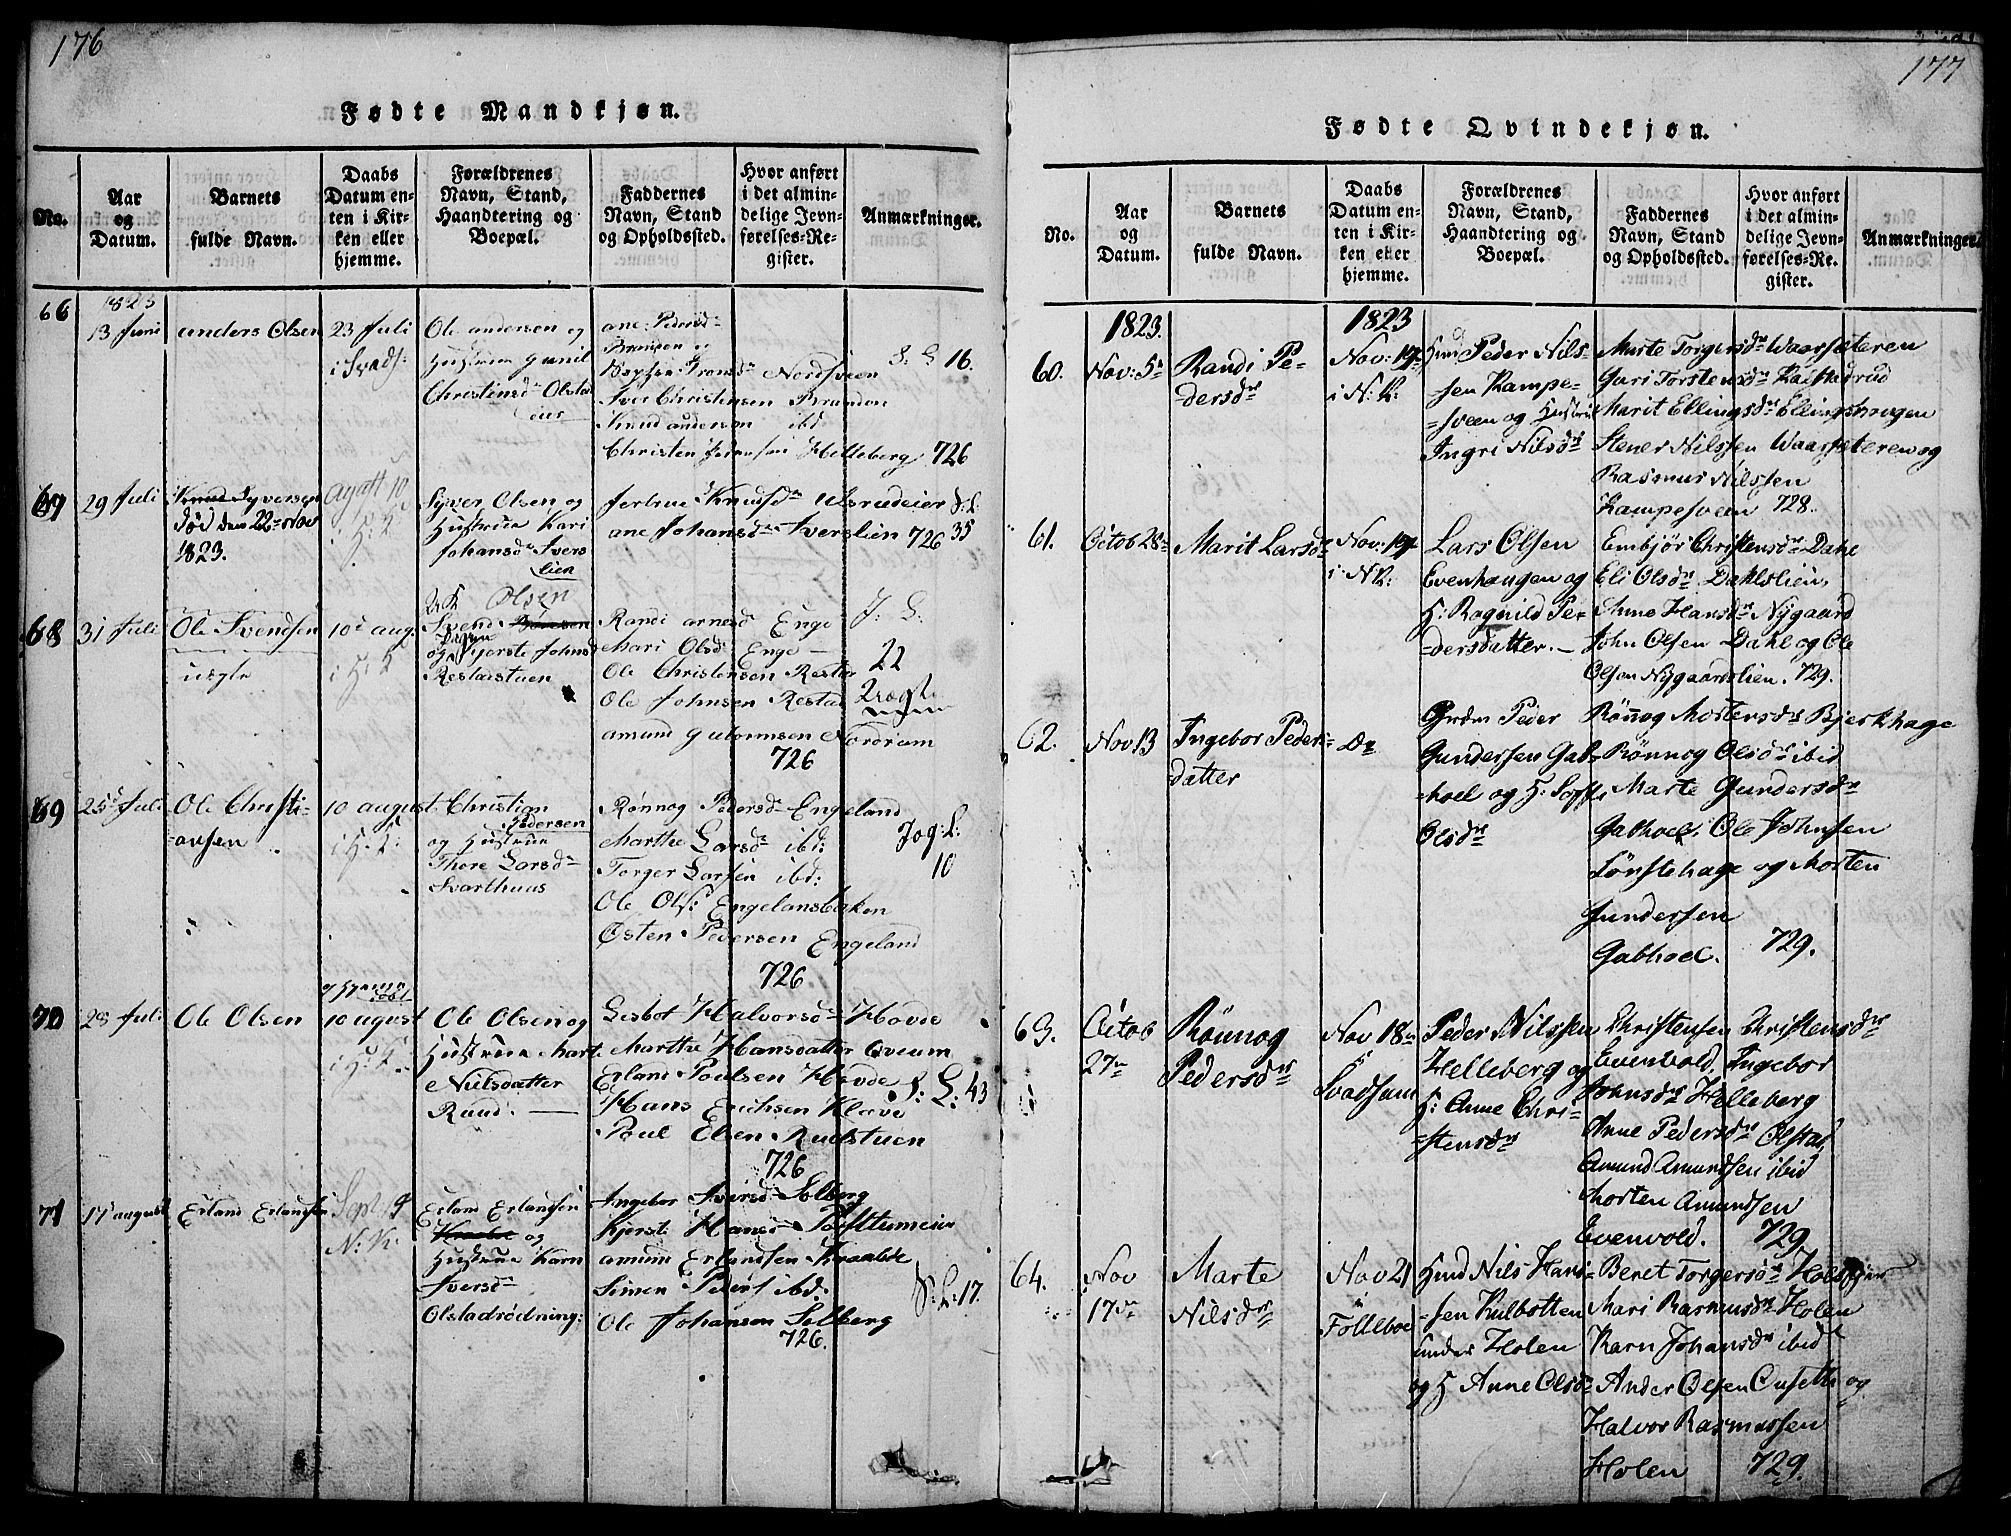 176
Fødte Mandkjøn.
No.
Aar
og
Datum.
Barnets
fulde Navn.
Daabs
Datum en-
ten i Kir-
ken eller
hjemme.
Forældrenes
Navn, Stand,
Haandtering og
Boepæl.
Faddernes
Navn, Stand
og Opholdssted.
Hvor anført
i det almin-
delige Jevn-
førelses-Re-
gister.
Anmærkninger.
66
1823
13 Juni
anders Olsen
23 Juli
Ole andersen og
Hustrue gunil
Christensdr Olstad
eier
ane Pedersdr
Nordsveen
Iver Christensen Brænden
Knud andersen ibd
Christen Helleberg 726
S: L 16.
67
29 Juli
Knud Syversen
død dem 22n Nov
1823.
10
H: K
Syver Olsen og
Hustrue Kari
Johansdr Ivers
lien
Knudsdr Ulsrudeier
ane Johansdr Iverslien 726
S: L:
35
68
31 Juli
Ole Svendsen
uægte
10 aug:
i H: K
Olsen
Svend
og Kjerste Johnsdr
Restadstuen
Randi arnesdr Enge
Mari Olsdr Enge
Ole Christensen Restad
Ole Johnsen Restad
amund gutormsen Nordrum
726
J: L:
22
Uægte
69
25 Juli
Ole Christi-
ansen
10 august
i H: K:
Christian
Pedersen
og Hustrue
Thore Larsdr
Svarthuus
Rønnog Pedersdr Engeland
Marthe Larsdr ibd:
Torger Larsen ibd:
Ole Ols: Engelansbaken
Østen Pedersen Engeland
726
Jog: L:
10
70
28 Juli
Ole Olsen
10 august
i H: K.
Ole Olsen og
Hustrue Mart
e Nielsdatter
Ruud.
Lisbet Halvorsdr Hovde
Marthe Hansdatter Qveum
Erland Poulsen Hovde
Hans Erichsen Klæve
Poul Elsen Rudstuen
726
S: L: 43
71
17 august
Erland Erlandsen
Sept 9
N: K.
Erland Erlandsen
Kraabe og
Hustrue Karn
Iversdr
Olstadrødning:
Ingebor Iversdr Solberg
Kjerst Hansdr
amund Erlandsen Kraabbe
Simen Peders ibd.
Ole Johansen Solberg
726.
S: L: 17.
177
Fødte Qvindekjøn.
No.
Aar
og
Datum.
Barnets
fulde Navn.
Daabs
Datum en-
ten i Kir-
ken eller
hjemme.
Forældrenes
Navn, Stand,
Haandtering og
Boepæl.
Faddernes
Navn, Stand
og Opholdssted.
Hvor anført
i det almin-
delige Jevn-
førelses-Re-
gister.
Anmærkninger.
1823.
1823
60.
Nov: 5n
Randi Pe-
dersdr
Nov: 19
i N: K:
Huusmd Peder Nils-
sen Kampe-
=sveen og Hustrue
Ingri Nilsdr
Marte Torgersdr Waarsæteren
Guri Torstensdr Kalstadrud
Marit Ellingsdr Ellingshaugen
Stener Nilssen Waarsæteren og
Rasmus Nilssen
Kampesveen 728.
61.
Octob 28n
Marit Larsdr
Nov: 19
i N: K:
Lars Olsen
Evenhaugen og
H: Ragnild Pe-
=dersdatter.
Embjør Christensdr Dahl
Eli Olsdr Dahlslien
Anne Hansdr Nygaard
John Olsen Dahl og Ole
Olsen Nygaardslien. 729.
62.
Nov 13
Ingebor Peders-
datter
Do
Grdm Peder
Gundersen Gab-
=hoel og H: Soffi
Olsdr
Rønnog Mortersdr Bjerkhage
Rønnog Olsdr ibid
Marte Gundersdr
Gabhoel, Ole Johnsen
Lønstehage og Morten
Gundersen
Gabhoel. 729.
63.
Octob
27n
Rønnog
Pedersdr
Nov 18n
i
Svadsum
Peder Nilssen
Helleberg og
H: Anne Chri-
=stensdr
Christensen Christensdr
Evenvold, Ingebor
Johnsdr Helleberg
Anne Pedersdr Olstad,
Amund Amundsen ibid
Morten Amundsen
Evenvold. 729
64.
Nov
17de
Marte
Nilsdr
Nov 21
i
Folleboe
Husmd Nils Hans-
=sen Kulbotten
under Holen
og H Anne Olsdr
Beret Torgersdr
Mari Rasmusdr Holen
Karn Johansdr ibid
Ander Olsen og
Halvor Rasmussen
Holen 729.